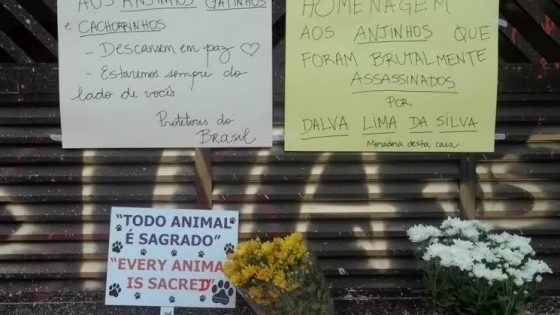 AOS ANJINHOS GATINHOS
e CACHORRINHOS
- Descansem em paz ♡
- Estaremos sempre do
lado de vocês.
Protetores do
Brasil
HOMENAGEM
AOS ANJINHOS QUE
FORAM BRUTALMENTE
ASSASSINADOS
POR
DALVA LIMA DA SILVA
Moradora desta casa
"TODO ANIMAL
É SAGRADO"
"EVERY ANIMAL
IS SACRED"